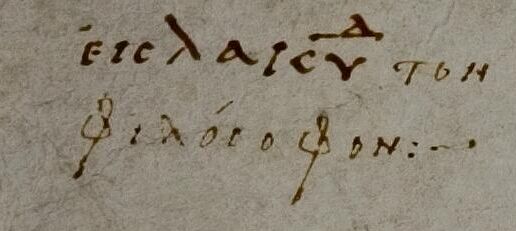 ἐις λαισυδ τον
φιλόσοφον:—